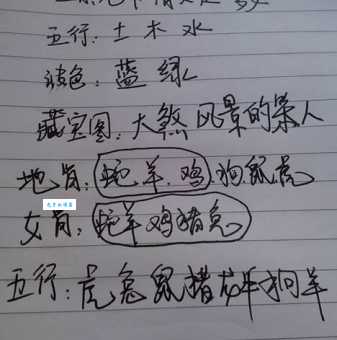 五行:土木水
波色:蓝绿
藏宝图:大煞风景的杀人
地肖:蛇羊鸡狗鼠虎
女肖:蛇羊鸡猪兔
五行:虎兔鼠猪龙牛狗羊